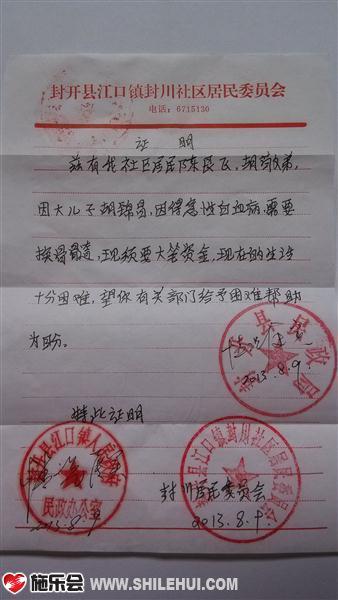 封开县江口镇封川社区居民委员会
电话：6715130
证明
兹有我社区居民陈民飞，胡
因大儿子胡锦昌，因得急性白血病，需要
换骨髓，现须要大笔资金，现在的生活
十分困难，望你有关部门给予困难帮助
为盼。
特此证明
情况属实
2013.8.9
封开县民政局
封开县江口镇人民政府
民政办公室
2013.8.9
封开县江口镇封川社区居民委员会
封川居民委员会
2013.8.9
施乐会
WWW.SHILEHUI.COM